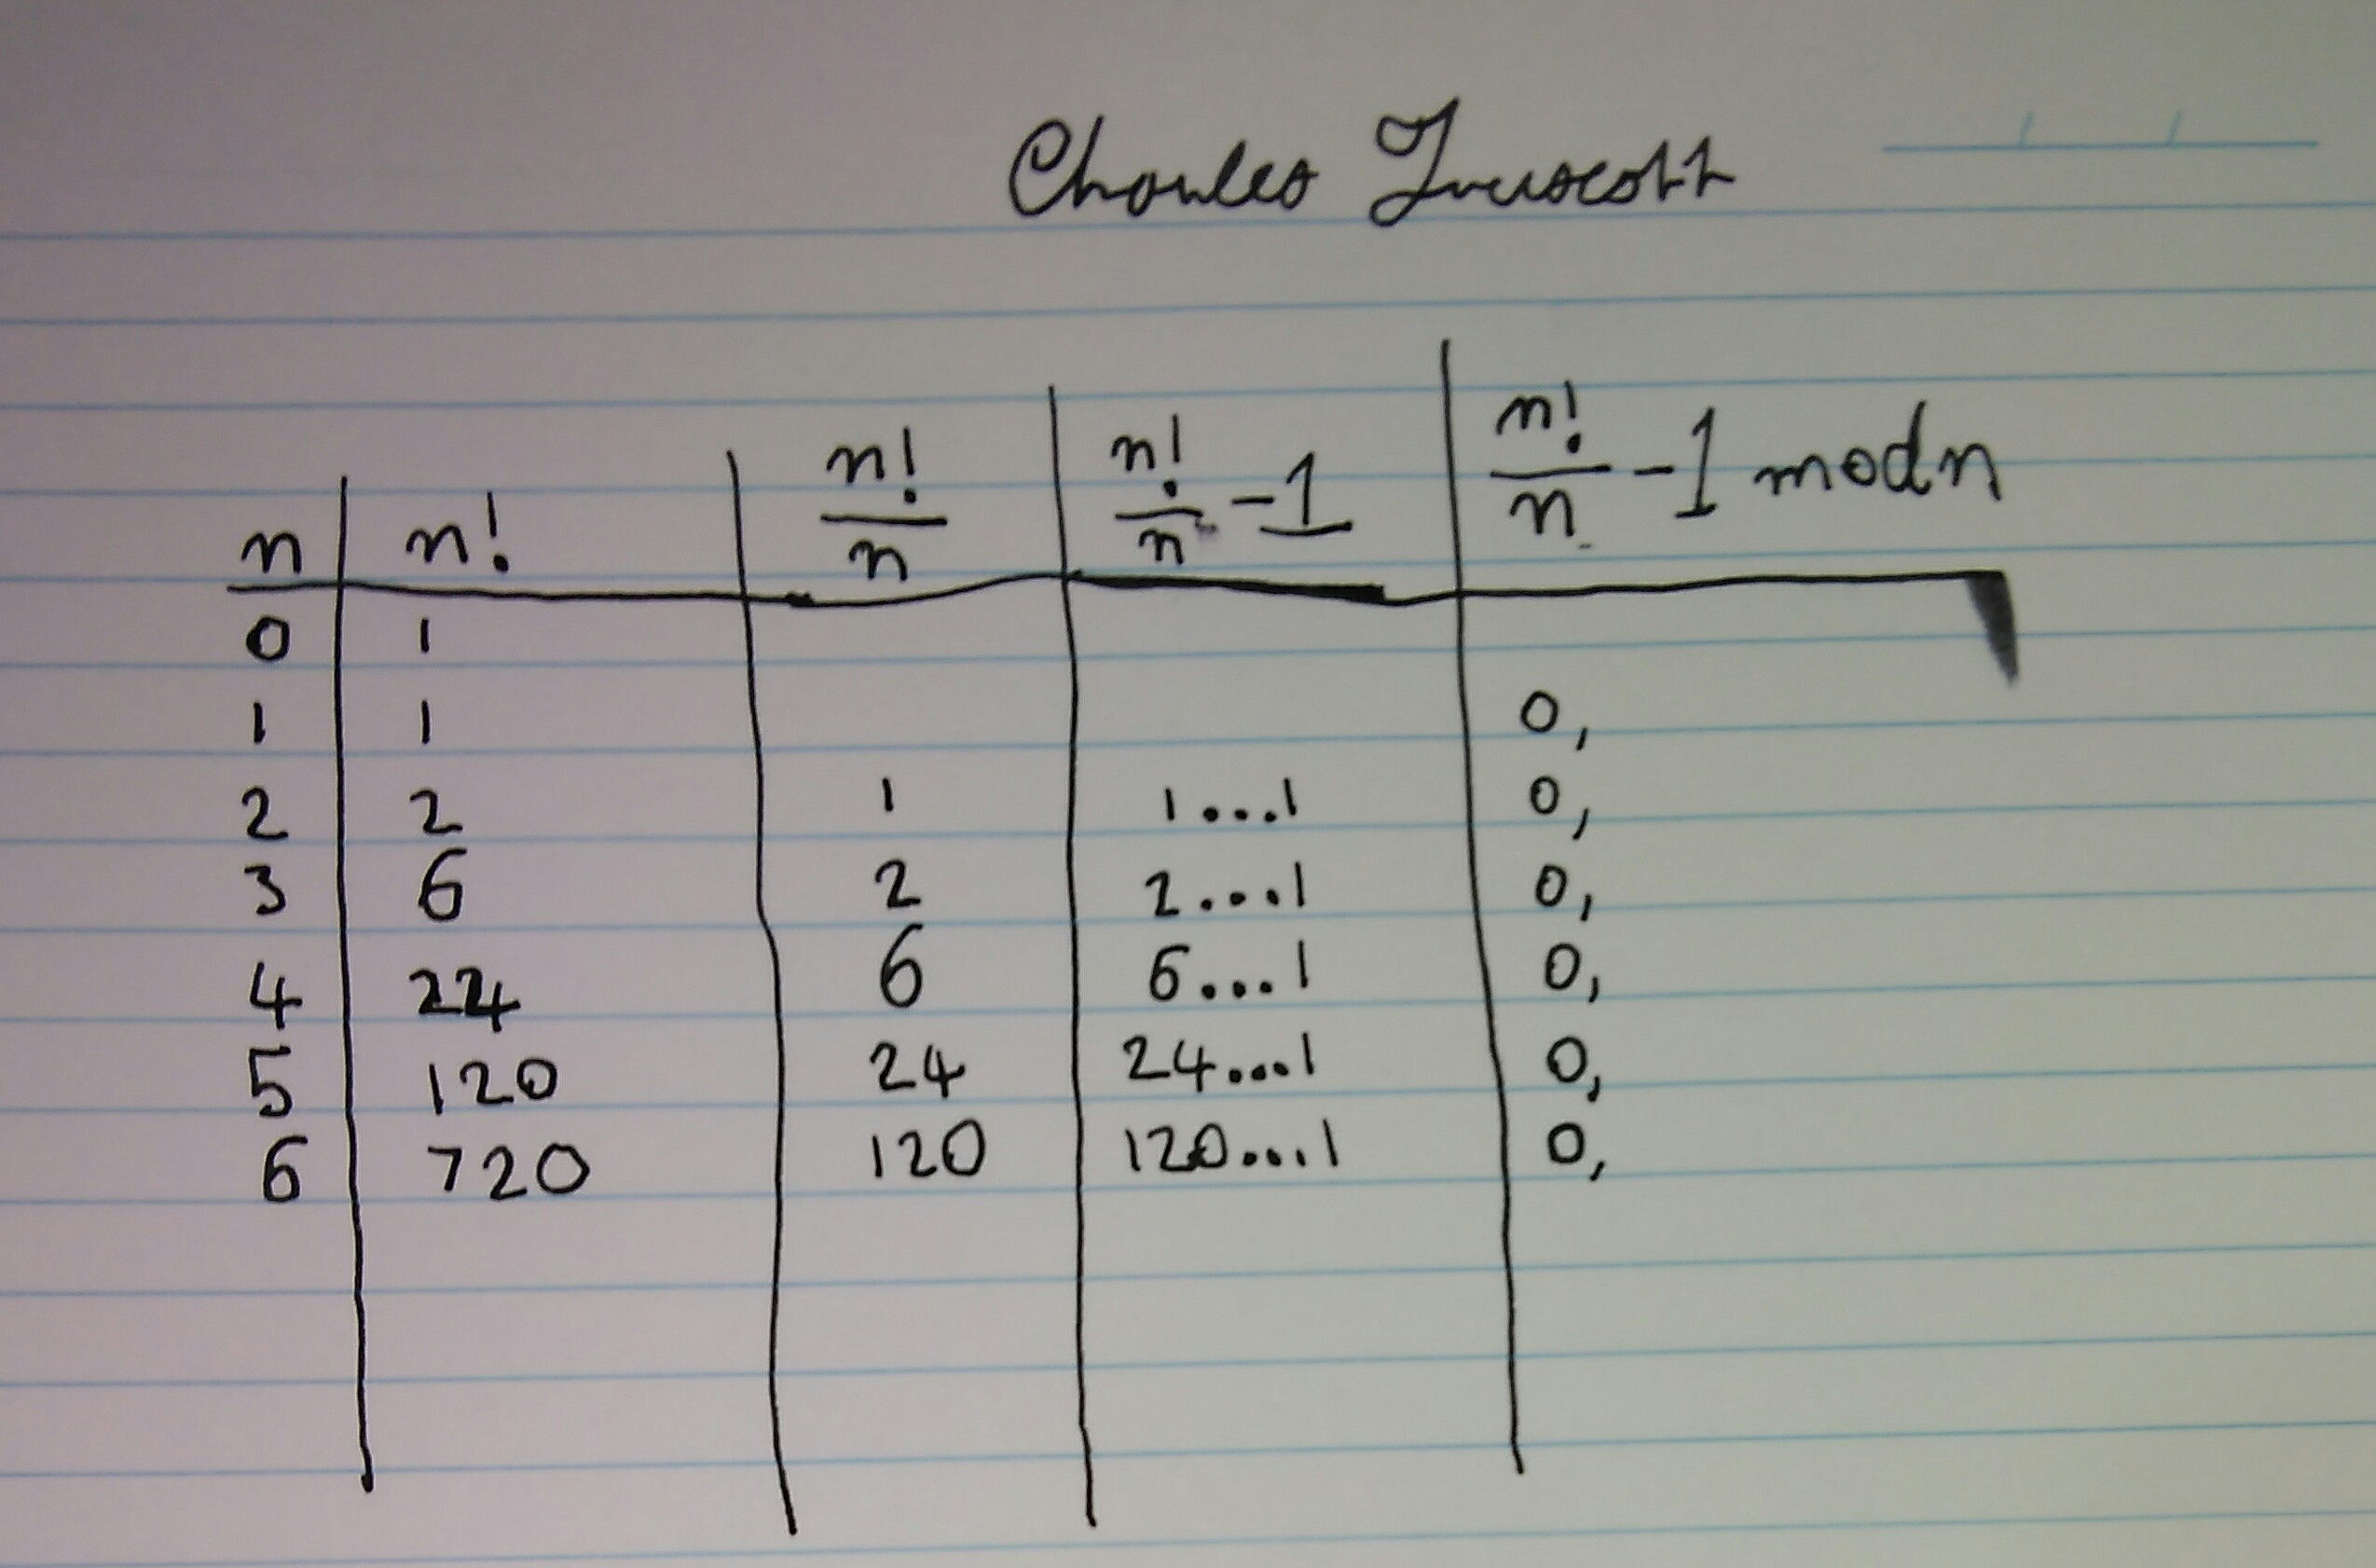 Charles Truscott
n | n! | n!/n | n!/n -1 | n!/n -1 modn
0 1
1 1 0,
2 2 1 1...1 0,
3 6 2 2....1 0,
4 24 6 6....1 0,
5 120 24 24....1 0,
6 720 120 120....1 0,